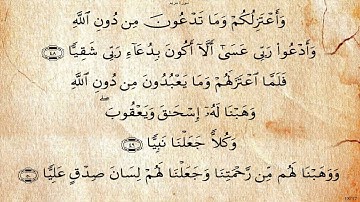 وَأَعْتَزِلُكُمْ وَمَا تَدْعُونَ مِن دُونِ ٱللَّهِ
وَأَدْعُوا۟ رَبِّى عَسَىٰٓ أَلَّآ أَكُونَ بِدُعَآءِ رَبِّى شَقِيًّا ٤٨
فَلَمَّا ٱعْتَزَلَهُمْ وَمَا يَعْبُدُونَ مِن دُونِ ٱللَّهِ
وَهَبْنَا لَهُۥٓ إِسْحَـٰقَ وَيَعْقُوبَ ۖ
وَكُلًّا جَعَلْنَا نَبِيًّا ٤٩
وَوَهَبْنَا لَهُم مِّن رَّحْمَتِنَا وَجَعَلْنَا لَهُمْ لِسَانَ صِدْقٍ عَلِيًّا ٥٠